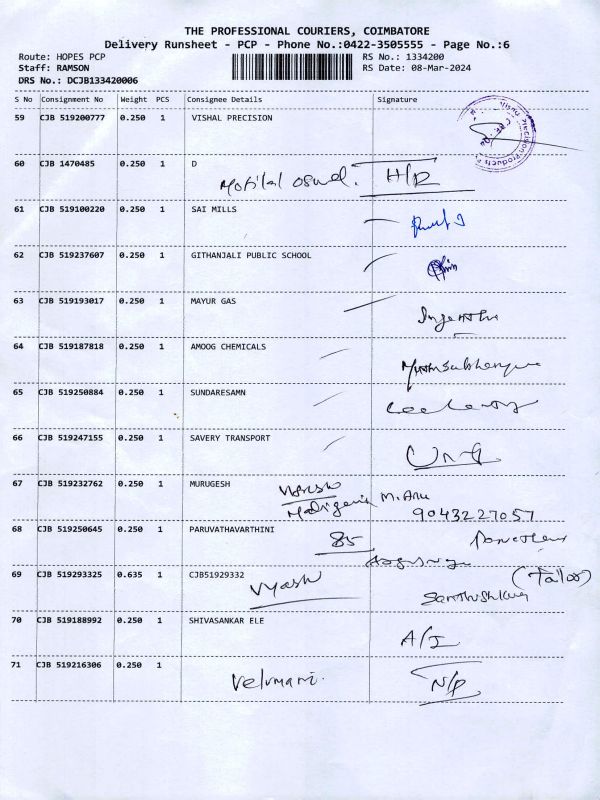 THE PROFESSIONAL COURIERS, COIMBATORE
Delivery Runsheet - PCP - Phone No.:0422-3505555 - Page No.:6
Route: HOPES PCP RS No.: 1334200
Staff: RAMSON RS Date: 08-Mar-2024
DRS No.: DCJB133420006
S No Consignment No Weight PCS Consignee Details Signature
59 CJB 519200777 0.250 1 VISHAL PRECISION
60 CJB 1470485 0.250 1 D
Motilal Oswal. H/R
61 CJB 519100220 0.250 1 SAI MILLS
62 CJB 519237607 0.250 1 GITHANJALI PUBLIC SCHOOL
63 CJB 519193017 0.250 1 MAYUR GAS
64 CJB 519187818 0.250 1 AMOOG CHEMICALS
65 CJB 519250884 0.250 1 SUNDARESAMN
66 CJB 519247155 0.250 1 SAVERY TRANSPORT
67 CJB 519232762 0.250 1 MURUGESH
M. Anu
9043227057
68 CJB 519250645 0.250 1 PARUVATHAVARTHINI
85
69 CJB 519293325 0.635 1 CJB51929332
Vyash (Tailor)
70 CJB 519188992 0.250 1 SHIVASANKAR ELE
A/I
71 CJB 519216306 0.250 1
Velumani. N/P